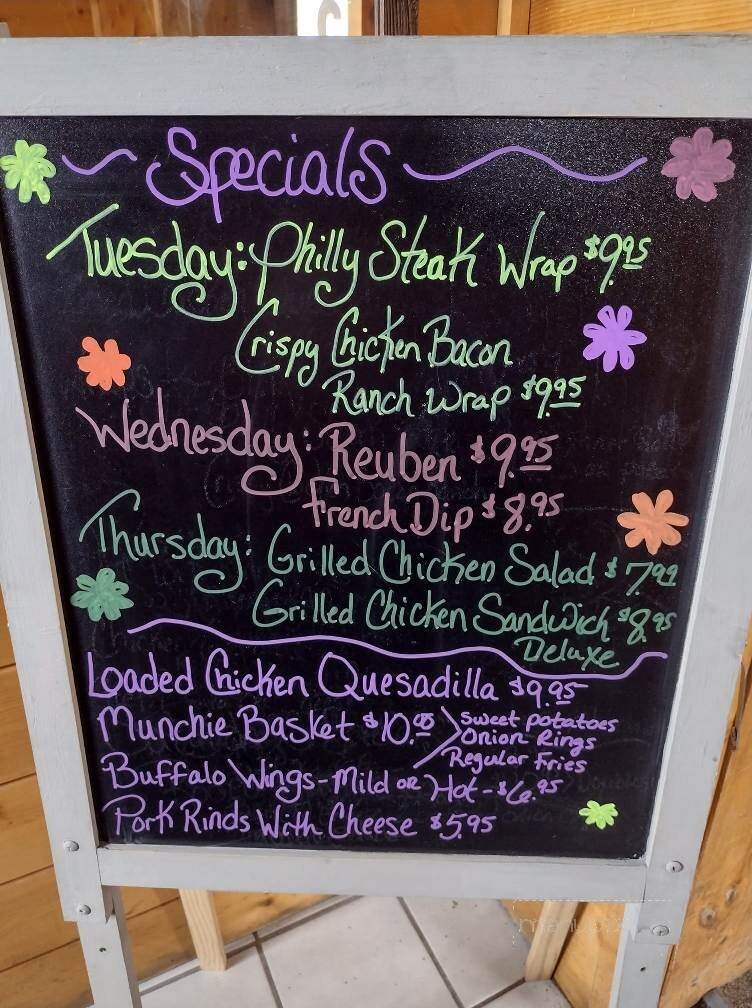 Specials
Tuesday: Philly Steak Wrap $9.95
Crispy Chicken Bacon
Ranch Wrap $9.95
Wednesday: Reuben $9.95
French Dip $8.95
Thursday: Grilled Chicken Salad $7.99
Grilled Chicken Sandwich $8.95
Deluxe
Loaded Chicken Quesadilla $9.95
Munchie Basket $10.
Sweet potatoes
Onion Rings
Regular Fries
Buffalo Wings-Mild or Hot-$6.95
Pork Rinds With Cheese $5.95